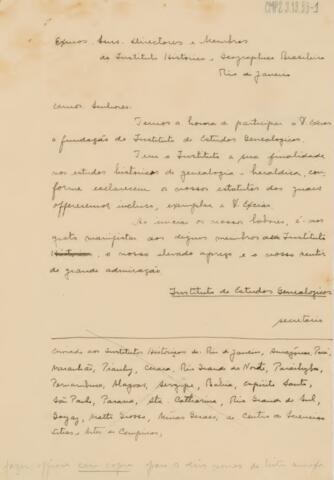 CMP 2.3.19.33-1
Exmos. Snrs. Directores e Membros
do Instituto Historico e Geographico Brasileiro
Rio de Janeiro
Caros Senhores.
Temos a honra de participar a V. Excias
a fundação do Instituto de Estudos Genealogicos.
Tem o Instituto a sua finalidade
nos estudos historicos de genealogia e heraldica, con-
forme esclarecem os nossos estatutos dos quaes
offerecemos incluso, exemplar a V. Excias.
Ao iniciar os nossos labores, é-nos
grato manifestar aos dignos membros desse Instituto
Historico, o nosso elevado apreço e o nosso sentir
de grande admiração.
Instituto de Estudos Genealogicos
secretario
aos Institutos Historicos de: Rio de Janeiro, Amazonas, Pará,
Maranhão, Piauhy, Ceara, Rio Grande do Norte, Parahyba,
Pernambuco, Alagoas, Sergipe, Bahia, Espirito Santo,
São Paulo, Paraná, Sta. Catharina, Rio Grande do Sul,
Goyaz, Matto Grosso, Minas Geraes, ao Centro de Sciencias
Letras e Artes de Campinas,
fazer officios com copia para o